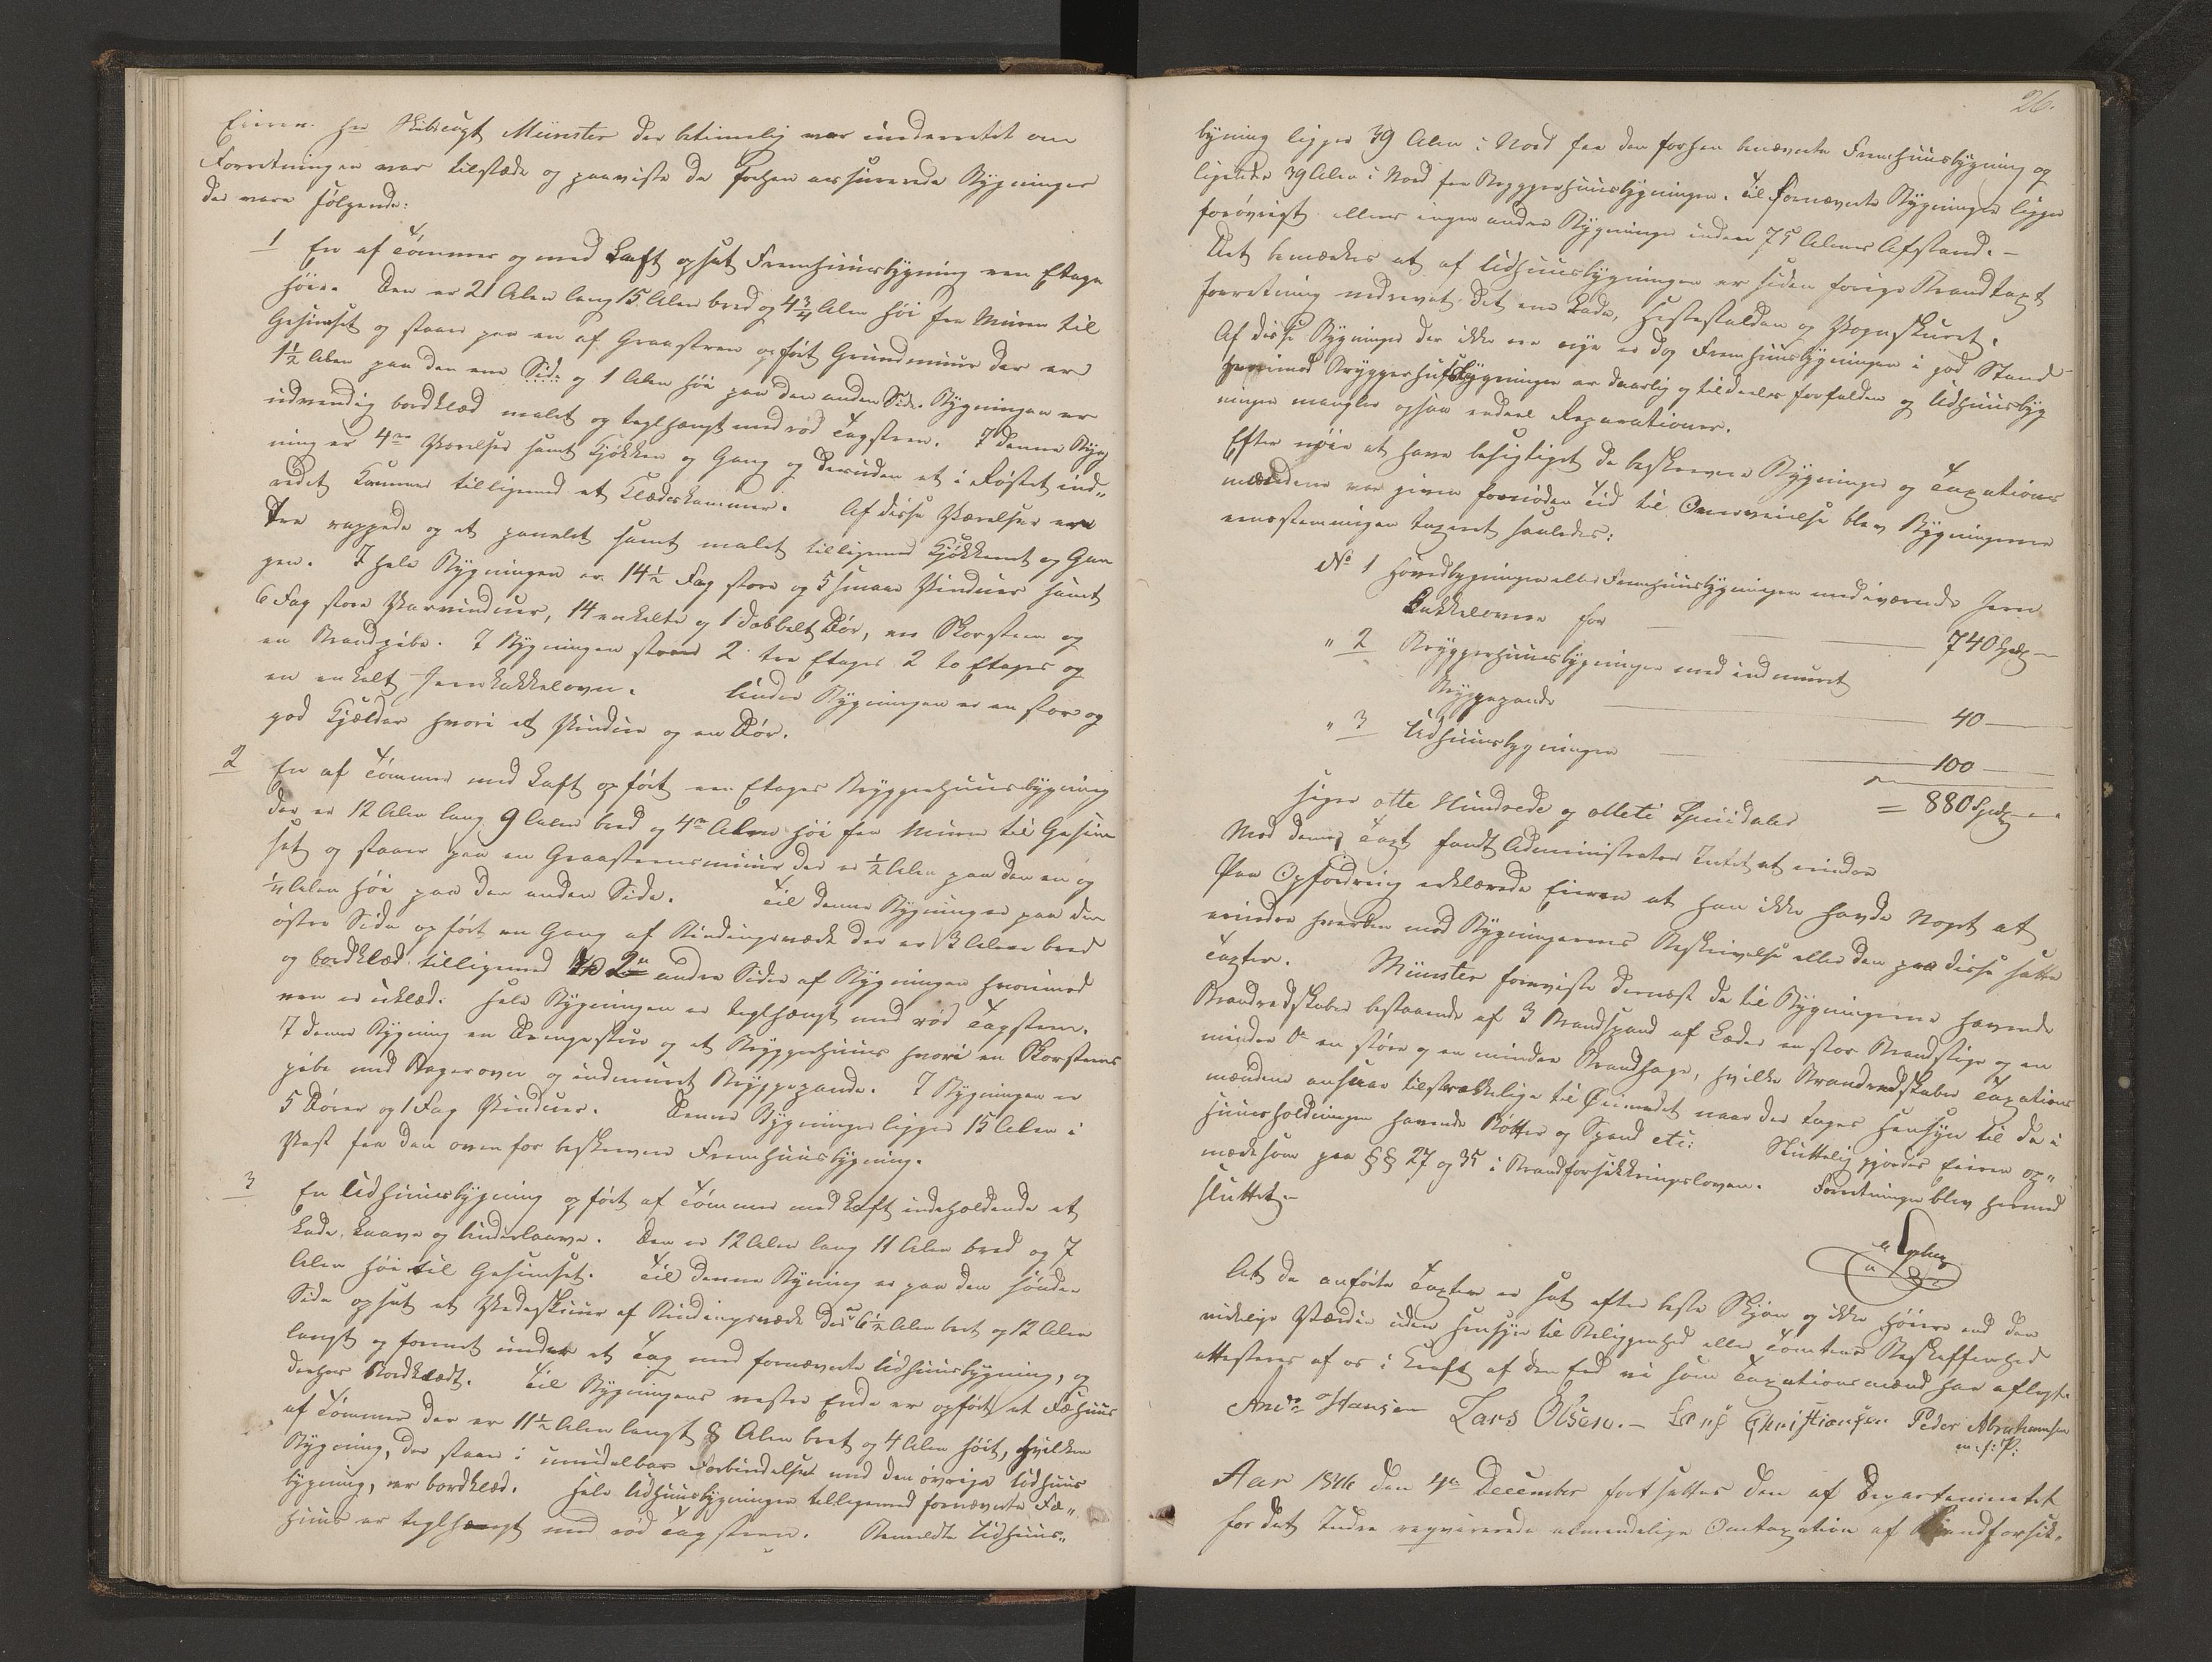 Eieren Hr Skibscapt Münster der betimelig var underrettet om
Forretningen var tilstæde og paaviste de forhen assurerede Bygninger
der vare følgende:
1 En af Tømmer og med Laft opsat Fremhuusbygning een Etage
høi. Den er 21 Alen lang 15 Alen bred og 4¾ Alen høi fra Muren til
Gesimset og staaer paa en af Graasteen opført Grundmuur der er
1½ Alen paa den ene Side og 1 Alen høi paa den anden Side. Bygningen er
udvendig bordklæd malet og teglhængt med rød Tagsteen. I denne Byg
ning er 4re Værelser samt Kjøkken og Gang og desuden et i Røstet ind„
redet Kammer tilligemed et Klædeskammer. Af disse Værelser ere
tre rappede og et panelet samt malet tilligemed Kjøkkenet og Gan
gen. I hele Bygningen er 14½ Fag store og 5 smaae Vinduer samt
6 Fag store Varvinduer, 14 enkelte og 1 dobbelt Dør, en Skorsteen og
en Brandpibe. I Bygningen staaer 2 tre Etages 2 to Etages og
en enkelt Jernkakkelovn. Under Bygningen er en stor og
god Kjælder hvori et Vindue og en Dør.
2 En af Tømmer med Laft opført een Etages Bryggerhuusbygning
der er 12 Alen lang 9 Alen bred og 4re Alen høi fra Muren til Gesim
set og staaer paa en Graasteensmuur der er ½ Alen paa den en og
¼ Alen høi paa den anden Side. Til denne Bygning er paa den
østre Side opført en Gang af Bindingsværk der er 3 Alen bred
og bordklæd tilligemed de 2de andre Sider af Bygningen hvorimod
een er uklæd. Hele Bygningen er teglhængt med rød Tagsteen.
I denne Bygning en Drengestue og et Bryggerhuus hvori en Skorsteens
pibe med Bagerovn og indmuret Bryggepande. I Bygningen er
5 Dører og 1 Fag Vinduer. Denne Bygning ligger 15 Alen i
Vest fra den ovenfor beskrevne Fremhuusbygning.
3 En Udhuusbygning opført af Tømmer med Laft indeholdende et
Lade, Laave og Underlaave. Den er 12 Alen lang 11 Alen bred og 7
Alen høi til Gesimset. Til denne Bygning er paa den søndre
Side opsat et Vedeskuur af Bindingsværk der er 6½ Alen bret og 12 Alen
langt og forenet under et Tag med fornævnte Udhuusbygning, og
derhos bordklædt. Til Bygningens vestre Ende er opført et Fæhuus
af Tømmer der er 11½ Alen langt 8 Alen bret og 4 Alen høit, hvilken
Bygning, der staaer i umidelbar Forbindelse med den øvrige Udhuus
bygning, er bordklæd. Hele Udhuusbygningen tilligemed fornævnte Fæ„
huus er teglhængt med rød Tagsteen. Bemeldte Udhuus„
26.
bygning ligger 39 Alen i Nord fra den forhen benævnte Fremhuusbygning og
ligeledes 39 Alen i Nord fra Bryggerhuusbygningen. Til fornævnte Bygninger ligger
forøvrigt ellers ingen andre Bygninger inden 75 Alens Afstand. -
Det bemærkes at af Udhuusbygningen er siden forrige Brandtaxt
forretning nedrevet det ene Lade, Hestestalden og Vognskuret.
Af disse Bygninger der ikke ere nye er dog Fremhuusbygningen i god Stand
hvorimod Bryggerhusbygningen er daarlig og tildeels forfalden og Udhuusbyg
ningen mangler ogsaa endeel Reparationer.
Efter nøie at have besigtiget de beskrevne Bygninger og Taxations
mændene var given fornøden Tid til Overveielse blev Bygningerne
eenstemmigen taxeret saaledes:
No 1 Hovedbygningen eller Fremhuusbygningen med iværende Jern
Kakkelovne for 740 Spdlr
" 2 Bryggerhuusbygningen med indmuret
Bryggepande 40
" 3 Udhuusbygningen
100
= 880 Spdlr
siger otte Hundrede og otteti Speciedaler
Mod denne Taxt fandt Administrator Intet at erindre
Paa Opfordring erklærede Eieren at han ikke havde Noget at
erindre hverken mod Bygningernes Beskrivelse eller den paa disse satte
Taxter. Münster foreviste dernæst de til Bygningerne havende
Brandredskaber bestaaende af 3 Brandspand af Læder en stor Brandstige og en
mindre Do en større og en mindre Brandhage, hvilke Brandredskaber Taxations
mændene ansaae tilstrækkelige til Øiemedet naar der tages Hensyn til de i
Huusholdningen havende Bøtter og Spand etc: Sluttelig gjordes Eieren op„
mærksom paa §§ 27 og 35 i Brandforsikkringsloven. Forretningen blev hermed
sluttet.-
At de anførte Taxter er sat efter beste Skjøn og ikke høiere end den
virkelige Værdie uden Hensyn til Beliggenhed eller Tomtens Beskaffenhed
attesteres af os i Kraft af den Eed vi som Taxationsmænd har aflagt.
Ands Hansen Lars Olsen.- Lars Christiansen Peder Abrahamsen
m: f: P:
Aar 1846 den 4de December fortsattes den af Departementet
for det Indre reqvirerede almindelige Omtaxation af Brandforsik-